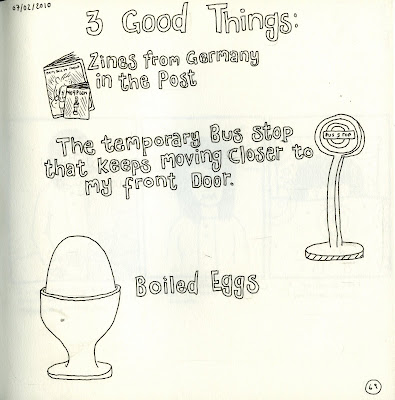 07/02/2010
3 Good Things:
Zines from Germany
in the Post
The temporary Bus stop
that keeps moving closer to
my front Door.
BUS STOP
Boiled Eggs
61